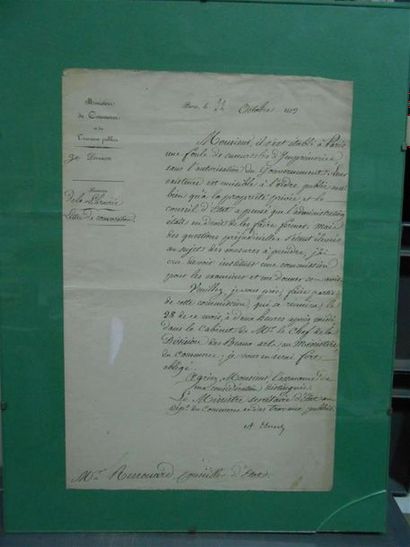 Ministère
du Commerce
et des
Travaux publics
Paris, le 22 Octobre 183
Division
de la Librairie
Monsieur, il s'est établi à Paris
une foule de d'Imprimerie
sous l'autorisation du Gouvernement
existence est nuisible à l'ordre public aussi
bien qu'à la propriété privée et le
Conseil d'État a pensé que l'administration
était en droit de les faire fermer; mais
des questions préjudicielles s'étant élevées
au sujet des mesures à prendre, j'ai
cru devoir instituer une commission
pour les examiner et me donner son avis.
Veuillez, je vous prie, faire partie
de cette commission qui se réunira le
28 de ce mois, à deux heures après midi
dans le Cabinet de Mr. le Chef de la
Division des Beaux arts au Ministère
du commerce; je vous en serai fort
obligé.
Agréez, Monsieur, l'assurance de
ma considération distinguée.
Le Ministre, secrétaire d'État au
dépt. du Commerce et des Travaux publics
Mr. Renouard, Conseiller d'État.